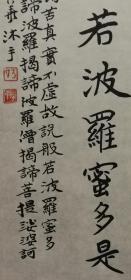 若波羅蜜多是
苦真實不虛故說般若波羅蜜多
諦波羅揭諦波羅僧揭諦菩提娑婆訶
沐手